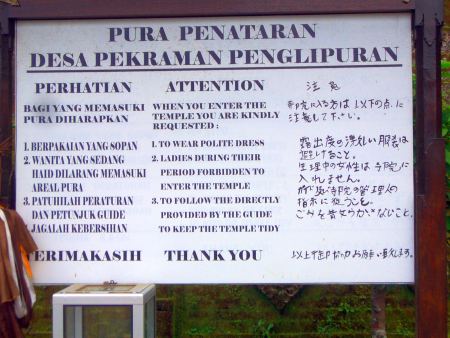 PURA PENATARAN
DESA PEKRAMAN PENGLIPURAN
PERHATIAN
BAGI YANG MEMASUKI
PURA DIHARAPKAN
1. BERPAKAIAN YANG SOPAN
2. WANITA YANG SEDANG
HAID DILARANG MEMASUKI
AREAL PURA
3. PATUHILAH PERATURAN
DAN PETUNJUK GUIDE
4. JAGALAH KEBERSIHAN
TERIMAKASIH
ATTENTION
WHEN YOU ENTER THE
TEMPLE YOU ARE KINDLY
REQUESTED :
1. TO WEAR POLITE DRESS
2. LADIES DURING THEIR
PERIOD FORBIDDEN TO
ENTER THE TEMPLE
3. TO FOLLOW THE DIRECTLY
PROVIDED BY THE GUIDE
TO KEEP THE TEMPLE TIDY
THANK YOU
注意
寺院に入る方は以下の点に
注意して下さい。
露出度の激しい服装は
避けること。
生理中の女性は寺院に
入れません。
寺院の管理人の
指示に従うこと。
ごみを
以上
お願い致します。